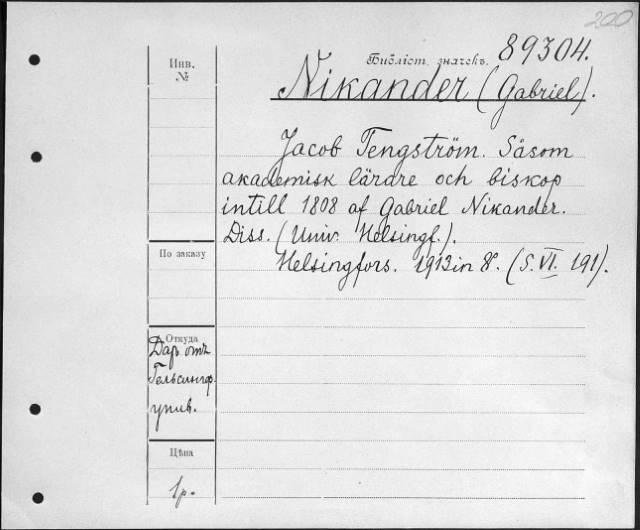 200
Инв.
№
Библіот. значекъ. 89304.
Nikander (Gabriel).
Jacob Tengström. Såsom
akademisk lärare och biskop
intill 1808 af Gabriel Nikander.
Diss. (Univ. Helsingf.).
Helsingfors. 1913 in 8º. (S. VI. 191).
По заказу
Откуда
Даръ отъ
Гельсингф.
унив.
Цѣна
1 р.